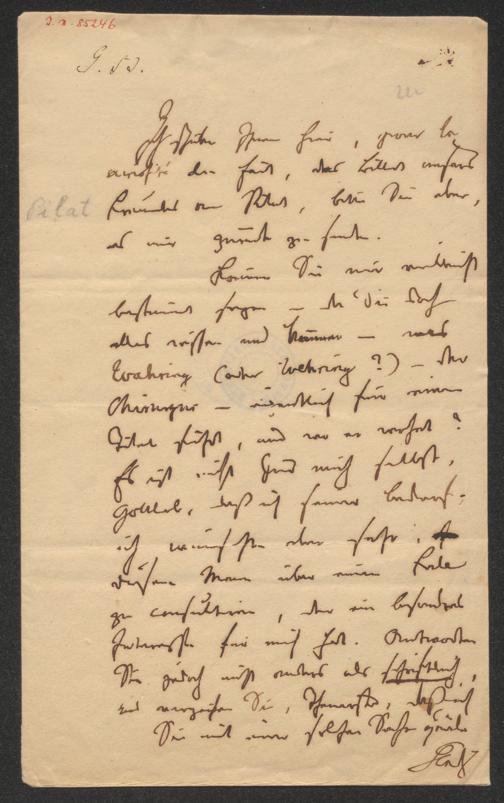 I.N. 85246
G. 53.
Ich schicke Ihnen hier, zwar
den Fait, das Billet unseres
Pilat
Freundes von Pilat, bitte Sie aber,
es mir zurück zu senden.
Können Sie mir vielleicht
bestimmt sagen — da Sie doch
alles wissen und kennen — was
Waehring (oder Wehring?) — der
Chirurgus — eigentlich für einen
Titel führt, und wo er wohnt?
Es ist nicht für mich selbst,
Gottlob, daß ich seiner bedarf;
ich wünschte aber sehr,
diesen Mann über einen
zu consultiren, der ein besonderes
Interesse für mich hat. Antworten
Sie jedoch nicht anders als schriftlich,
und verzeihen Sie, Theuerster, daß ich
Sie mit einer solchen Sache quäle